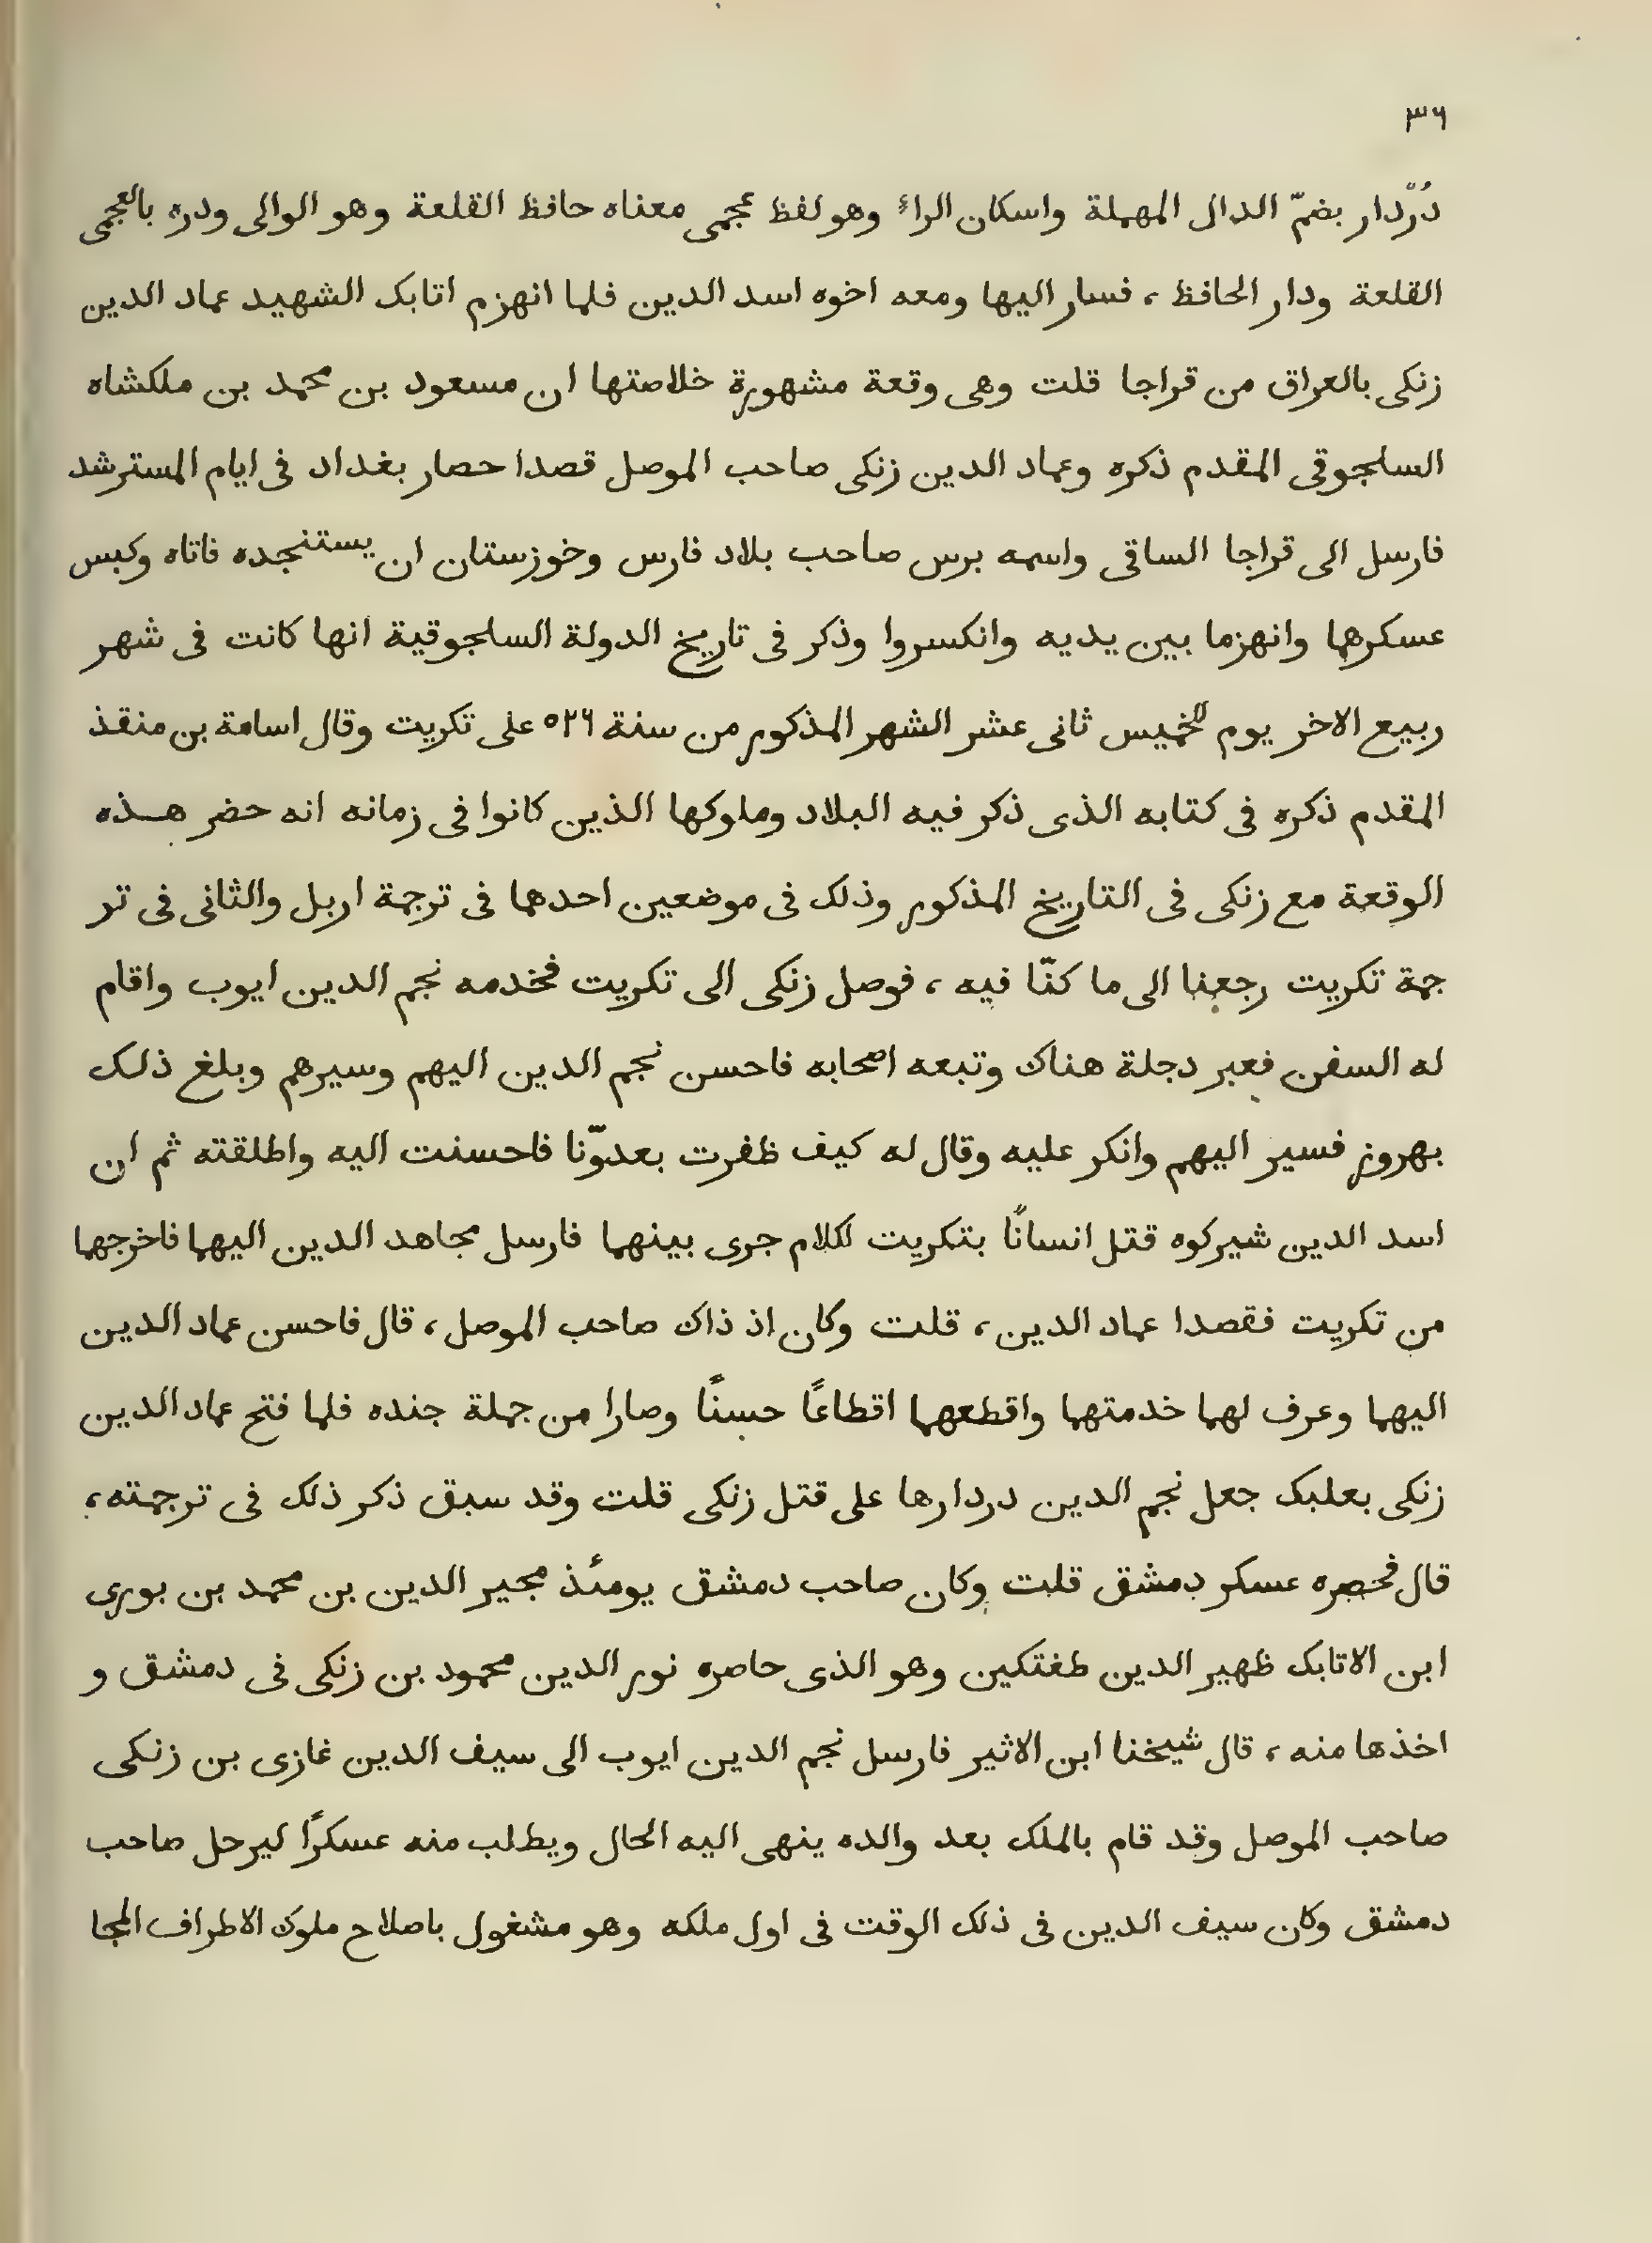 ٣٦
دُرْدار بضمّ الدال المهملة واسكان الراء وهو لفظ عجمى معناه حافظ القلعة وهو الوالى ودره بالعجمى
القلعة ودار الحافظ ، فسار اليها ومعه اخوه اسد الدين فلما انهزم اتابك الشهيد عماد الدين
زنكى بالعراق من قراجا قلت وهى وقعة مشهورة خلاصتها ان مسعود بن محمد بن ملكشاه
السلجوقى المقدم ذكره وعماد الدين زنكى صاحب الموصل قصدا حصار بغداد فى ايام المسترشد
فارسل الى قراجا الساقى واسمه برس صاحب بلاد فارس وخوزستان ان يستنجده فاتاه وكبس
عسكرهما وانهزما بين يديه وانكسروا وذكر فى تاريخ الدولة السلجوقية انها كانت فى شهر
ربيع الاخر يوم الخميس ثانى عشر الشهر المذكور من سنة ٥٢٦ على تكريت وقال اسامة بن منقذ
المقدم ذكره فى كتابه الذى ذكر فيه البلاد وملوكها الذين كانوا فى زمانه انه حضر هـذه
الوقعة مع زنكى فى التاريخ المذكور وذلك فى موضعين احدهما فى ترجمة اربل والثانى فى تر
جمة تكريت رجعنا الى ما كنّا فيه ، فوصل زنكى الى تكريت فخدمه نجم الدين ايوب واقام
له السفن فعبر دجلة هناك وتبعه اصحابه فاحسن نجم الدين اليهم وسيرهم وبلغ ذلك
بهروز فسير اليهم وانكر عليه وقال له كيف ظفرت بعدوّنا فاحسنت اليه واطلقته ثم ان
اسد الدين شيركوه قتل انسانًا بتكريت لكلام جرى بينهما فارسل مجاهد الدين اليهما فاخرجهما
من تكريت فقصدا عماد الدين ، قلت وكان اذ ذاك صاحب الموصل ، قال فاحسن عماد الدين
اليهما وعرف لهما خدمتهما واقطعهما اقطاعًا حسنًا وصارا من جملة جنده فلما فتح عماد الدين
زنكى بعلبك جعل نجم الدين دردارها على قتل زنكى قلت وقد سبق ذكر ذلك فى ترجمته ،
قال فحصره عسكر دمشق قلت وكان صاحب دمشق يومئذ مجير الدين بن محمد بن بورى
ابن الاتابك ظهير الدين طغتكين وهو الذى حاصره نور الدين محمود بن زنكى فى دمشق و
اخذها منه ، قال شيخنا ابن الاثير فارسل نجم الدين ايوب الى سيف الدين غازى بن زنكى
صاحب الموصل وقد قام بالملك بعد والده ينهى اليه الحال ويطلب منه عسكرًا ليرحل صاحب
دمشق وكان سيف الدين فى ذلك الوقت فى اول ملكه وهو مشغول باصلاح ملوك الاطراف المجا